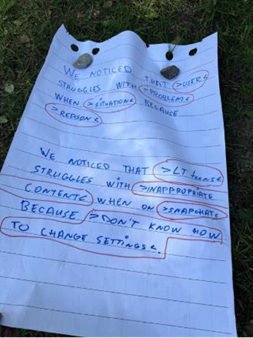 WE NOTICED THAT >USER<
STRUGGLES WITH >PROBLEM<
WHEN >SITUATION< BECAUSE
>REASON<
WE NOTICED THAT >LT
STRUGGLES WITH >INAPPROPRIATE
CONTENT< WHEN ON >SNAPCHAT<
BECAUSE >DON'T KNOW HOW
TO CHANGE SETTINGS<.